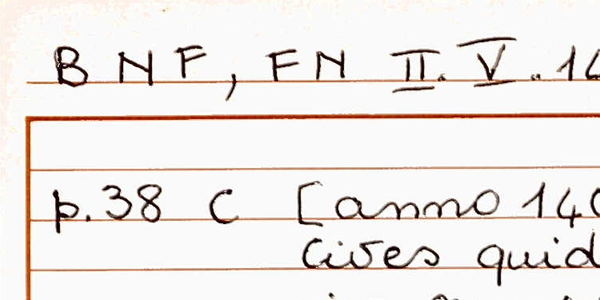 BNF, FN II. V. 14
p.38 C [anno 140
Cives quid